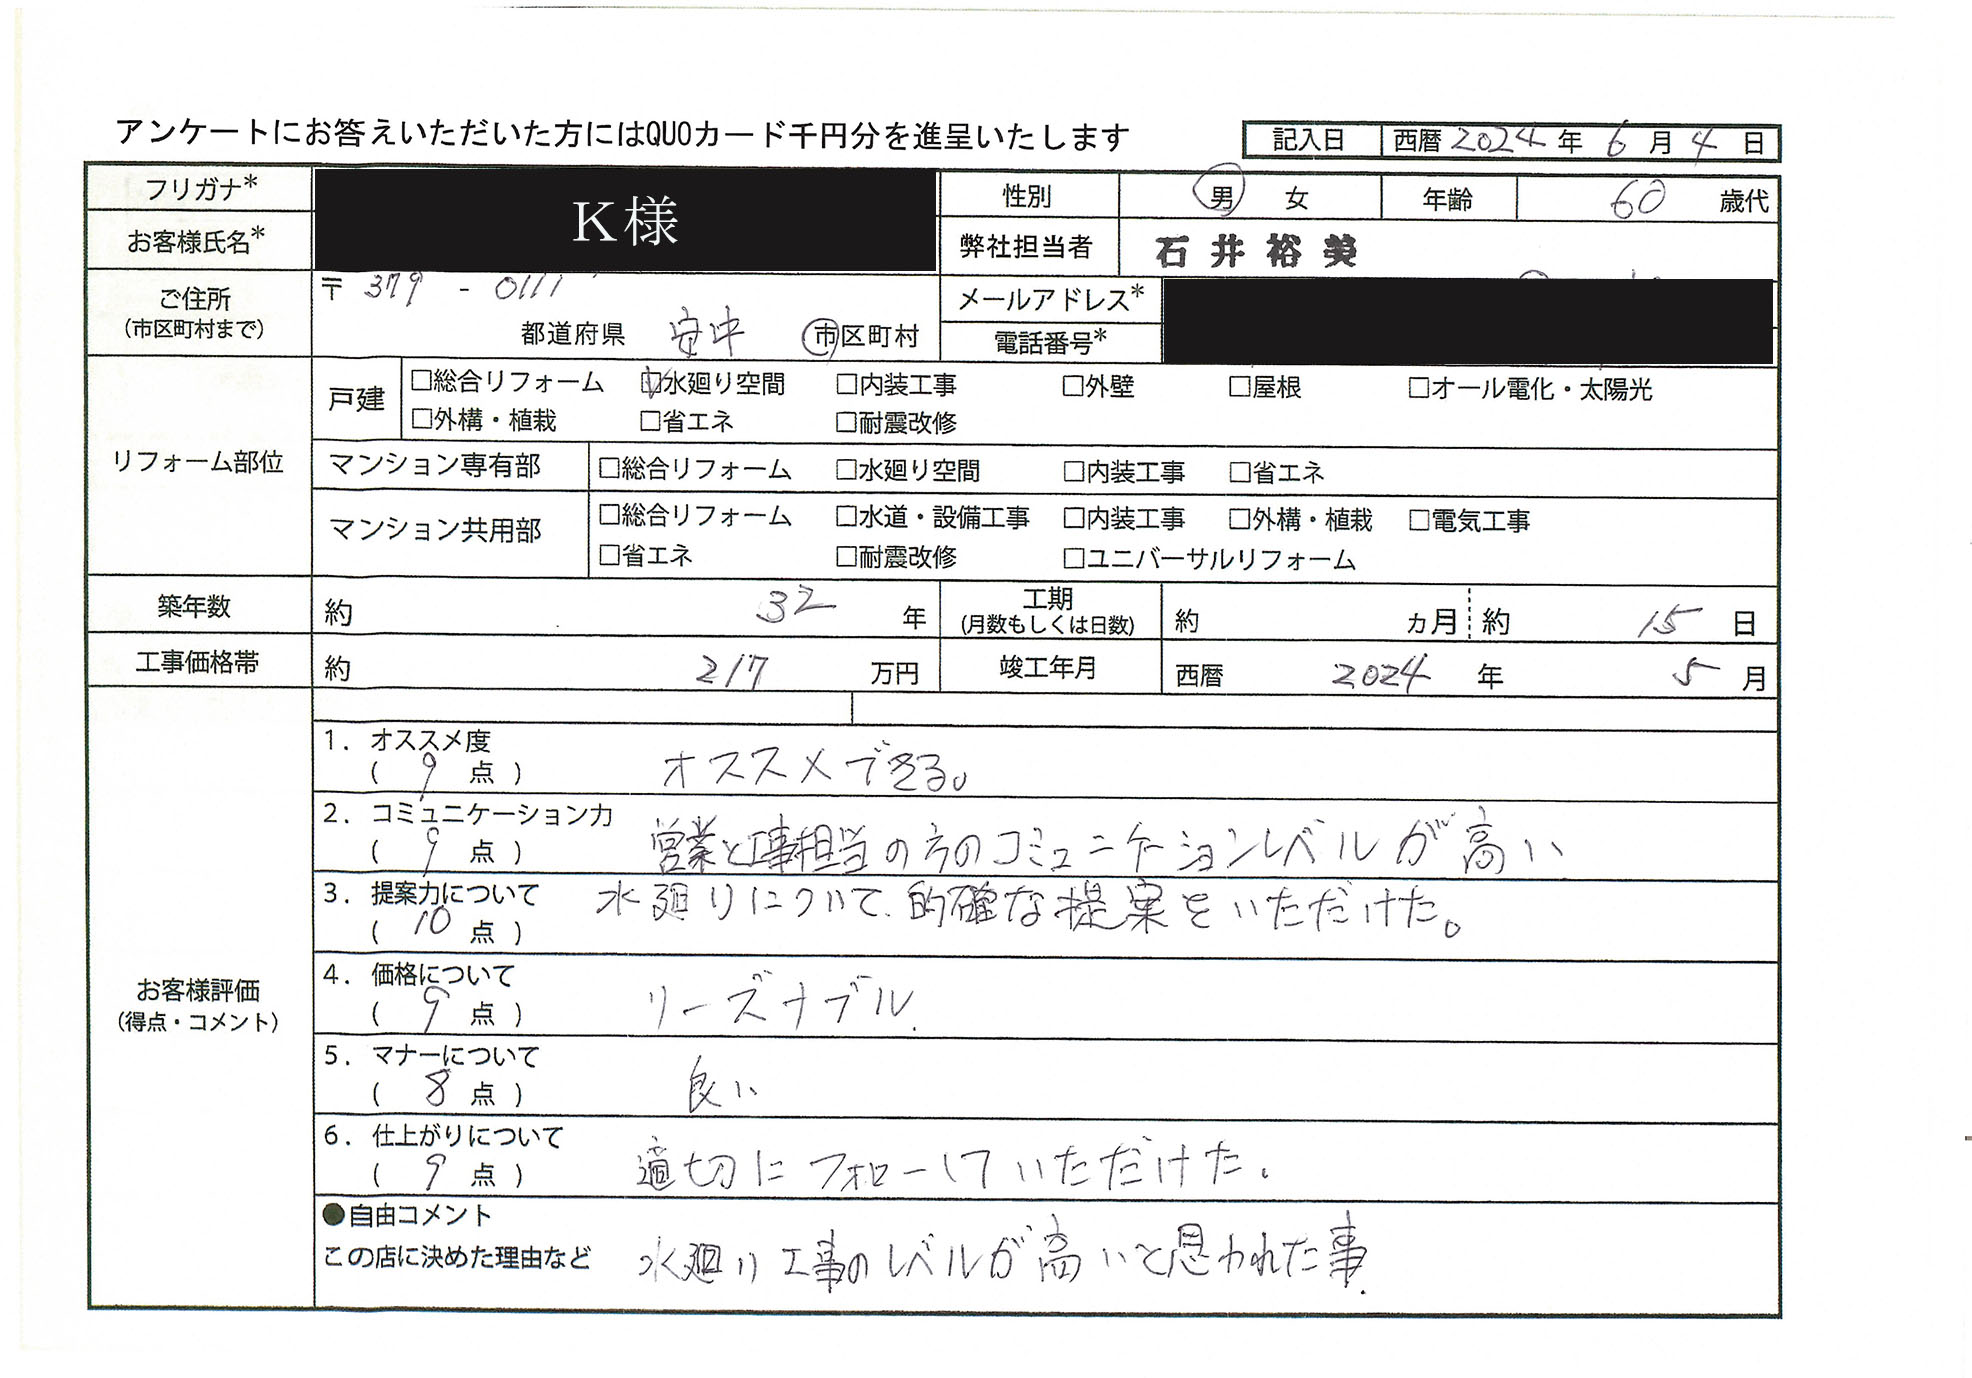 アンケートにお答えいただいた方にはQUOカード千円分を進呈いたします
記入日 西暦 2024 年 6 月 4 日
フリガナ* K様 性別 男 女 年齢 60 歳代
お客様氏名* 弊社担当者 石井裕美
ご住所 〒 379 - 0111 メールアドレス*
(市区町村まで) 都道府県 安中 市区町村 電話番号*
リフォーム部位
戸建 □総合リフォーム ☑水廻り空間 □内装工事 □外壁 □屋根 □オール電化・太陽光
□外構・植栽 □省エネ □耐震改修
マンション専有部 □総合リフォーム □水廻り空間 □内装工事 □省エネ
マンション共用部 □総合リフォーム □水道・設備工事 □内装工事 □外構・植栽 □電気工事
□省エネ □耐震改修 □ユニバーサルリフォーム
築年数 約 32 年 工期 (月数もしくは日数) 約 カ月 約 15 日
工事価格帯 約 217 万円 竣工年月 西暦 2024 年 5 月
お客様評価
(得点・コメント)
1. オススメ度
( 9 点 ) オススメできる。
2. コミュニケーション力
( 9 点 ) 営業と工事担当の方のコミュニケーションレベルが高い
3. 提案力について 水廻りについて、的確な提案をいただけた。
( 10 点 )
4. 価格について
( 9 点 ) リーズナブル.
5. マナーについて
( 8 点 ) 良い
6. 仕上がりについて
( 9 点 ) 適切にフォローしていただけた.
●自由コメント
この店に決めた理由など 水廻り工事のレベルが高いと思われた事.